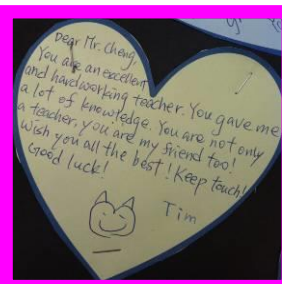 Dear Mr. Cheng,
You are an excellent
and hardworking teacher. You gave me
a lot of knowledge. You are not only
a teacher, you are my friend too!
Wish you all the best! Keep touch!
Good luck!
Tim